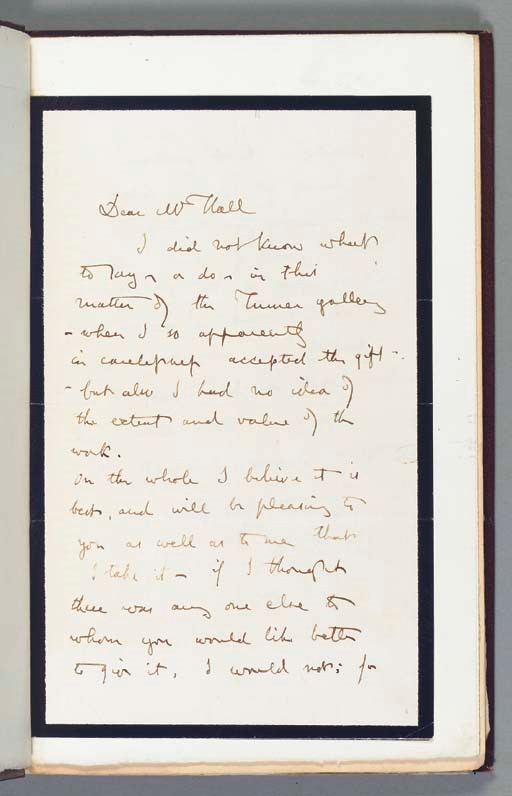 Dear Mr Hall
I did not know what
to say, or do, in this
matter of the Turner gallery
- when I so apparently
in carelessness accepted the gift -
- but also I had no idea of
the extent and value of the
work.
On the whole I believe it is
best, and will be pleasing to
you as well as to me that
I take it - if I thought
there was any one else to
whom you would like better
to give it, I would not; for